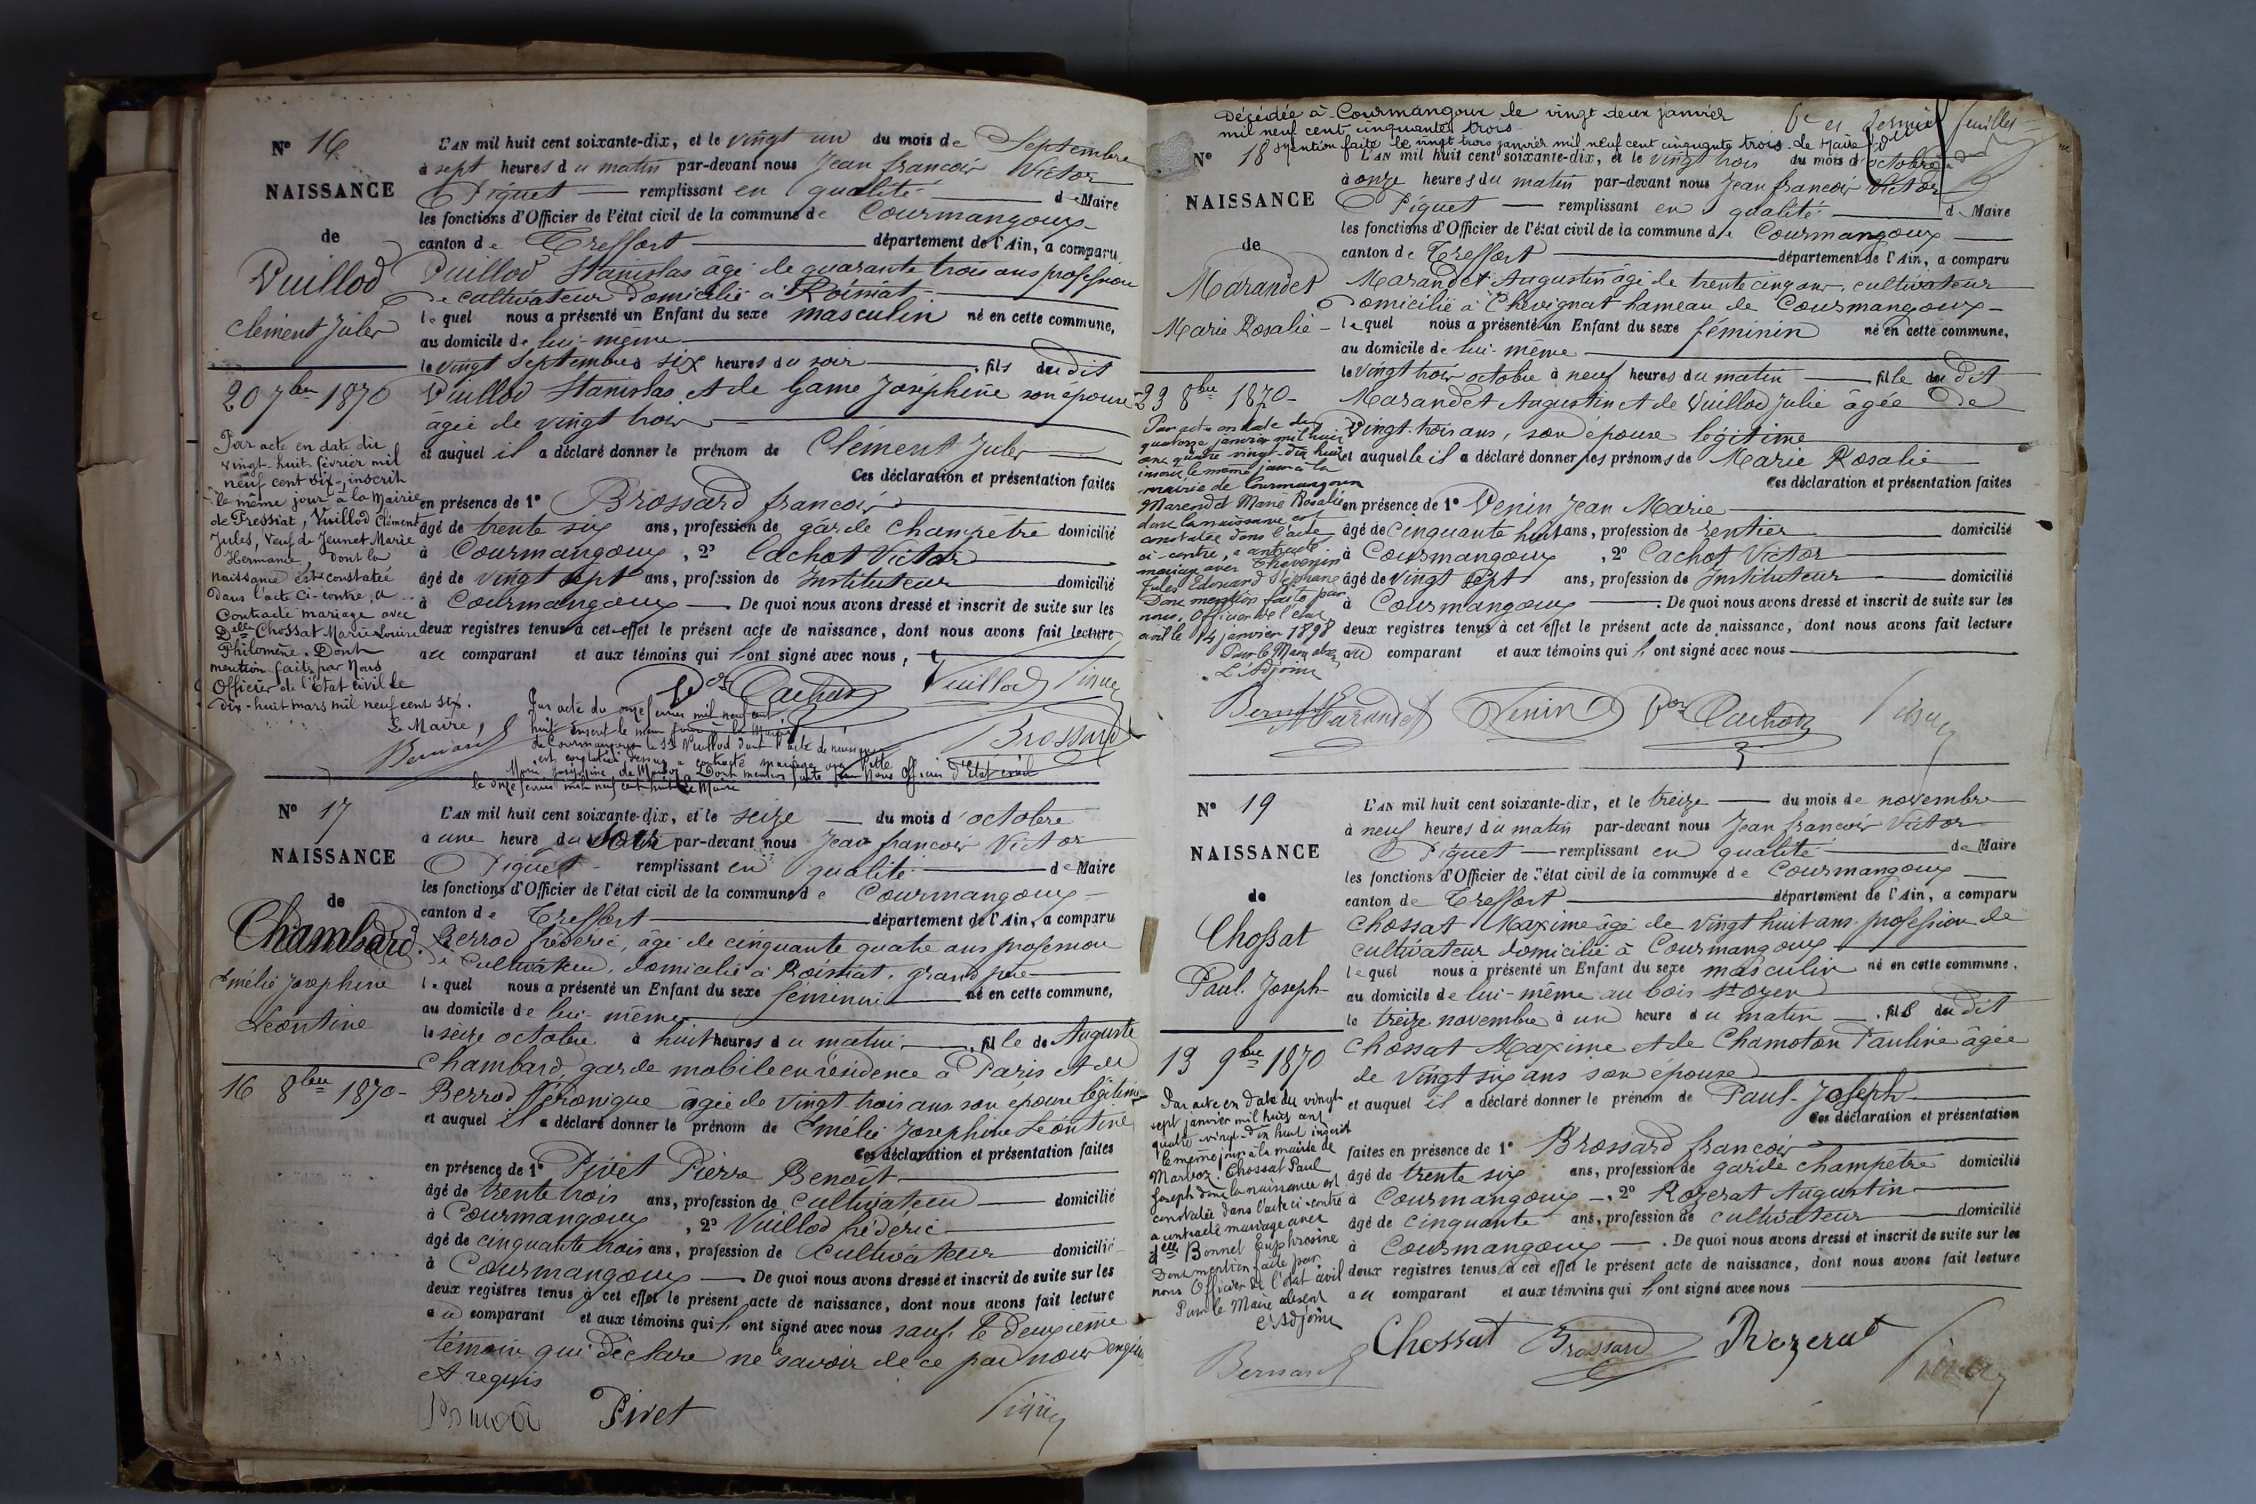 N° 16
NAISSANCE
de
Vuillod
Clément Jules
20 7bre 1870
Par acte en date du
vingt-huit février mil
neuf cent six, inscrit
le même jour à la Mairie
de Pressiat, Vuillod Clément
Jules, Veuf de Jeunet Marie
Hermance, dont la
naissance est constatée
dans l'acte ci-contre, a
contracté mariage avec
Delle Chossat Marie Louise
Philomène. Dont
mention faite par Nous
Officier de l'Etat civil le
dix-huit mars mil neuf cent six.
Le Maire,
Bernard
L'AN mil huit cent soixante-dix, et le vingt un du mois de Septembre
à sept heures du matin par-devant nous Jean françois Victor
Piguet remplissant en qualité de Maire
les fonctions d'Officier de l'état civil de la commune de Courmangoux
canton de Treffort département de l'Ain, a comparu
Vuillod Stanislas âgé de quarante trois ans profession
de cultivateur domicilié à Roissiat
lequel nous a présenté un Enfant du sexe masculin né en cette commune,
au domicile de lui-même
le vingt Septembre à six heures du soir , fils du dit
Vuillod Stanislas et de Game Joséphine son épouse
âgée de vingt trois
et auquel il a déclaré donner le prénom de Clément Jules
Ces déclaration et présentation faites
en présence de 1° Brossard françois
âgé de trente six ans, profession de garde champêtre domicilié
à Courmangoux , 2° Cachot Victor
âgé de vingt sept ans, profession de Instituteur domicilié
à Courmangoux De quoi nous avons dressé et inscrit de suite sur les
deux registres tenus à cet effet le présent acte de naissance, dont nous avons fait lecture
au comparant et aux témoins qui l'ont signé avec nous,
Vor Cachot Vuillod Piguet
Brossard
Par acte du onze février mil neuf cent
huit inscrit le même jour à la Mairie
de Courmangoux le Sr Vuillod dont l'acte de naissance
est constatée dessus a contracté mariage avec Delle
Marie Joséphine Dont mention faite par Nous Officier d'Etat civil
le onze février mil neuf cent huit Le Maire
N° 17
NAISSANCE
de
Chambard
Emélie Josephine
Leontine
16 8bre 1870
L'AN mil huit cent soixante-dix, et le seize du mois d'octobre
à une heure du Soir par-devant nous Jean francois Victor
Piguet remplissant en qualité de Maire
les fonctions d'Officier de l'état civil de la commune de Courmangoux
canton de Treffort département de l'Ain, a comparu
Berrod fréderic, âgé de cinquante quatre ans profession
de Cultivateur, domicilié à Roissiat, grand père
lequel nous a présenté un Enfant du sexe féminin né en cette commune,
au domicile de lui-même
le seize octobre à huit heures du matin , fille de Auguste
Chambard, garde mobile en résidence à Paris et de
Berrod Véronique âgée de vingt-trois ans son épouse légitime
et auquel il a déclaré donner le prénom de Emélie Josephine Léontine
Ces déclaration et présentation faites
en présence de 1° Pivet Pierre Benoît
âgé de trente trois ans, profession de cultivateur domicilié
à Courmangoux , 2° Vuillod fréderic
âgé de cinquante trois ans, profession de Cultivateur domicilié
à Courmangoux De quoi nous avons dressé et inscrit de suite sur les
deux registres tenus à cet effet le présent acte de naissance, dont nous avons fait lecture
au comparant et aux témoins qui l'ont signé avec nous sauf le deuxième
témoin qui déclare ne le savoir de ce par nous enquis
et requis
Pivet Piguet
Décédée à Courmangoux le vingt deux janvier
mil neuf cent cinquante trois
mention faite le vingt trois janvier mil neuf cent cinquante trois. Le Maire
6e et dernier feuillet
N° 18
NAISSANCE
de
Marandet
Marie Rosalie
23 8bre 1870
Par acte en date du
quatorze janvier mil huit
cent quatre vingt-dix huit
inscrit le même jour à la
mairie de Courmangoux
Marendet Marie Rosalie
dont la naissance est
constatée dans l'acte
ci-contre, a contracté
mariage avec Thevenin
Jules Edouard Stéphane
Dont mention faite par
nous, Officier de l'état
civil le 14 janvier 1898
Pour le Maire absent,
L'Adjoint
Bernard
L'AN mil huit cent soixante-dix, et le vingt trois du mois d'octobre
à onze heures du matin par-devant nous Jean françois Victor
Piguet remplissant en qualité de Maire
les fonctions d'Officier de l'état civil de la commune de Courmangoux
canton de Treffort département de l'Ain, a comparu
Marandet Augustin âgé de trente cinq ans, cultivateur
Domicilié à Chevignat hameau de Courmangoux
lequel nous a présenté un Enfant du sexe féminin né en cette commune,
au domicile de lui-même
le vingt trois octobre à neuf heures du matin fille du dit
Marandet Augustin et de Vuillod Julie âgée de
Vingt-trois ans, son épouse légitime
et auquelle il a déclaré donner les prénoms de Marie Rosalie
Ces déclaration et présentation faites
en présence de 1° Venin Jean Marie
âgé de cinquante huit ans, profession de rentier domicilié
à Courmangoux , 2° Cachot Victor
âgé de vingt sept ans, profession de Instituteur domicilié
à Courmangoux . De quoi nous avons dressé et inscrit de suite sur les
deux registres tenus à cet effet le présent acte de naissance, dont nous avons fait lecture
au comparant et aux témoins qui l'ont signé avec nous
Marandet Venin Vor Cachot Piguet
N° 19
NAISSANCE
de
Chossat
Paul-Joseph
13 9bre 1870
Par acte en date du vingt
sept janvier mil huit cent
quatre-vingt-dix huit inscrit
le même jour à la mairie de
Marboz, Chossat Paul
Joseph dont la naissance est
constatée dans l'acte ci-contre
a contracté mariage avec
delle Bonnet Euphrosine
Dont mention faite par
nous Officier de l'état civil
Pour le Maire absent
L'Adjoint
Bernard
L'AN mil huit cent soixante-dix, et le treize du mois de novembre
à neuf heures du matin par-devant nous Jean françois Victor
Piguet remplissant en qualité de Maire
les fonctions d'Officier de l'état civil de la commune de Courmangoux
canton de Treffort département de l'Ain, a comparu
Chossat Maxime âgé de vingt huit ans profession de
cultivateur domicilié à Courmangoux
lequel nous a présenté un Enfant du sexe masculin né en cette commune,
au domicile de lui-même au bois St oyen
le treize novembre à un heure du matin , fils du dit
Chossat Maxime et de Chamoton Pauline âgée
de vingt six ans son épouse
et auquel il a déclaré donner le prénom de Paul-Joseph
Ces déclaration et présentation
faites en présence de 1° Brossard françois
âgé de trente six ans, profession de garde champêtre domicilié
à Courmangoux , 2° Rozerat Augustin
âgé de cinquante ans, profession de cultivateur domicilié
à Courmangoux . De quoi nous avons dressé et inscrit de suite sur les
deux registres tenus à cet effet le présent acte de naissance, dont nous avons fait lecture
au comparant et aux témoins qui l'ont signé avec nous
Chossat Brossard Rozerat Piguet